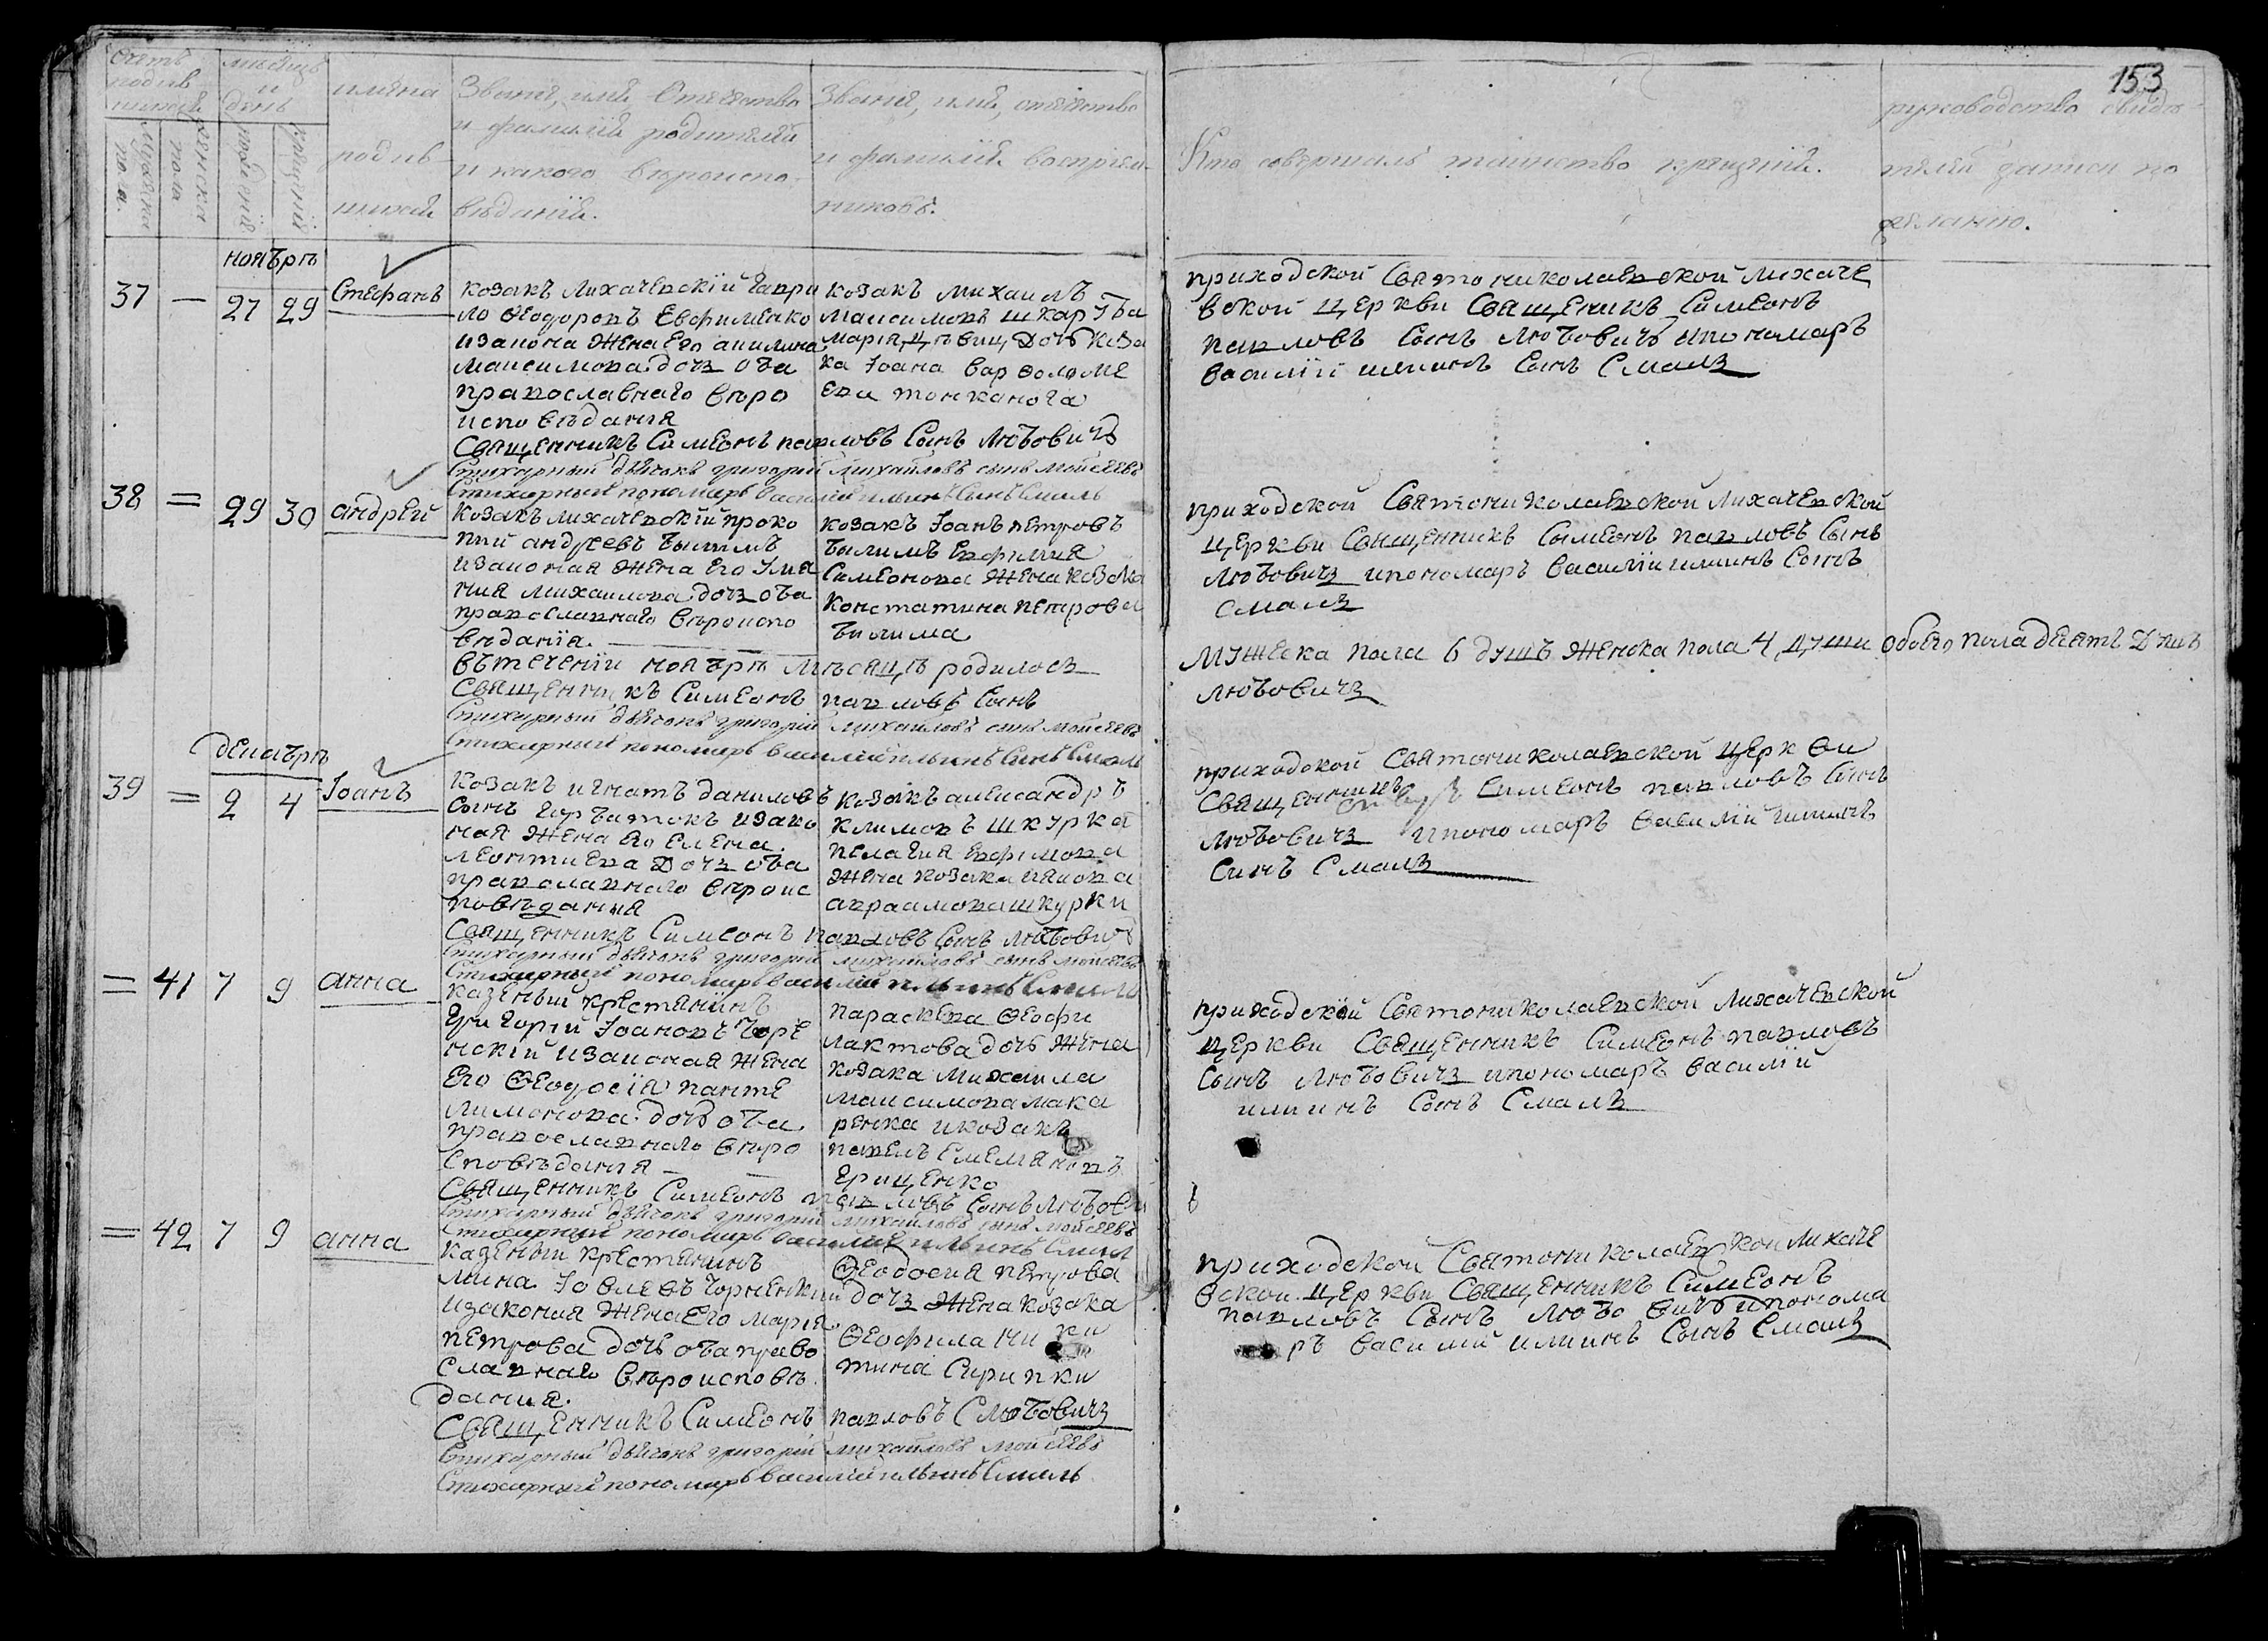 153
Счетъ родив шихся
мѣсяцъ и день
имена родив шихся
Званія, имя Отечество и фамилія родителей и какого вѣроиспо вѣданія.
Званія, имя, отечество и фамилія воспріем никовъ.
Кто совершалъ таинство крещенія.
рукоприкладство свидѣ телей записи по желанію.
мужеска по ла.
женска пола
рожденія
крещенія
ноябрь
37 — 27 29 Стефанъ
козакъ Лихачевскій Гаври
ло Ѳеодоровъ Евфименко
изаконна жена Его акилина
максимова дочь оба
православнаго веро
исповѣдания
козакъ михаилъ
максимовъ шкарУба
мария девица дочь коза
ка Іоана варѳоломе
ева тонканога
приходской Святониколаевской Лихаче
вской церкви Священикъ Симеонъ
павловъ Сынъ Любовичъ ипономаръ
василій илиинъ Сынъ Смаль
Священникъ Симеонъ павловъ Сынъ Любовичъ
Стихарный дьячокъ григорій Михайловъ сынъ Мойсеевъ
Стихарный пономарь василій ильинъ Сынъ Смаль
38 = 29 30 андрей
козакъ лихачевскій проко
пий андреевъ билимъ
изаконая жена Его Ульа
ния михаилова дочь оба
православнаго вѣроиспо
вѣданїя.
козакъ Іоанъ петровъ
билимъ Евфимия
Симеонова жена козака
констатина петрова
билима
приходской Святониколаевской Лихачевской
церкви Священникъ Сымеонъ павловъ Сынъ
Любовичъ ипономаръ василіи илиинъ Сынъ
Смаль
вътечении ноября мѣсяцѣ родилось
мужеска пола 6 душъ женска пола 4 души обоего пола десять душъ
Священникъ Симеонъ павловъ Сынъ
Любовичъ
Стихарный дьячокъ григорій михайловъ сынъ мойсеевъ
Стихарный пономарь василій ильинъ Сынъ Смаль
декабрь
39 = 2 4 Іоанъ
козакъ игнатъ даниловъ
Сынъ горбатокъ изако
ная жена Его Елена
леонтиева дочь оба
православнаго вѣроис
повѣдания
козакъ александръ
климовъ шкурка
пелагия Евфимова
жена козака
авраамова шкурки
приходской Святониколаевской церкви
Священникъ Симеонъ павловъ Сынъ
Любовичъ ипономаръ василій илиинъ
Синъ Смаль
Священникъ Симеонъ павловъ Сынъ Любовичъ
Стихарный дьячокъ григорій михайловъ сынъ мойсеевъ
Стихарный пономарь василій ильинъ Смаль
= 41 7 9 анна
казеный крестянинъ
Григорій Іоановъ Чорне
нскій изаконая жена
Его Ѳеодосїя панте
лимонова дочь оба
православнаго вѣро
споведания —
параскева Ѳеофи
лактова дочь жена
козака михаила
максимова мака
ренка икозакъ
павелъ Емельяновъ
Ерищенко
приходской Святониколаевской Лихачевской
церкви Священникъ Симеонъ павловъ
Сынъ Любовичъ ипономаръ василій
илиинъ Сынъ Смаль
Священникъ Симеонъ павловъ Сынъ Любович
Стихарный дьячокъ григорій михайловъ сынъ мойсеевъ
Стихарный пономарь василій ильинъ Смал
= 42 7 9 анна
казеный крестянинъ
мина Іовлевъ Чорненкій
изаконая жена Его мария
петрова дочь оба право
славнаго вѣроисповѣ
дания.
Ѳеодосия петрова
дочь жена козака
Ѳеофила ники
тина Сирипки
приходской Святониколаевской Лихаче
вской церкви Священникъ Симеонъ
павловъ Сынъ Любовичъ ипонома
ръ василий илиинъ Сынъ Смаль
Священникъ Симеонъ павловъ С Любовичъ
Стихарный дьячокъ григорій михайловъ мойсеевъ
Стихарный пономарь василій ильинъ Смаль